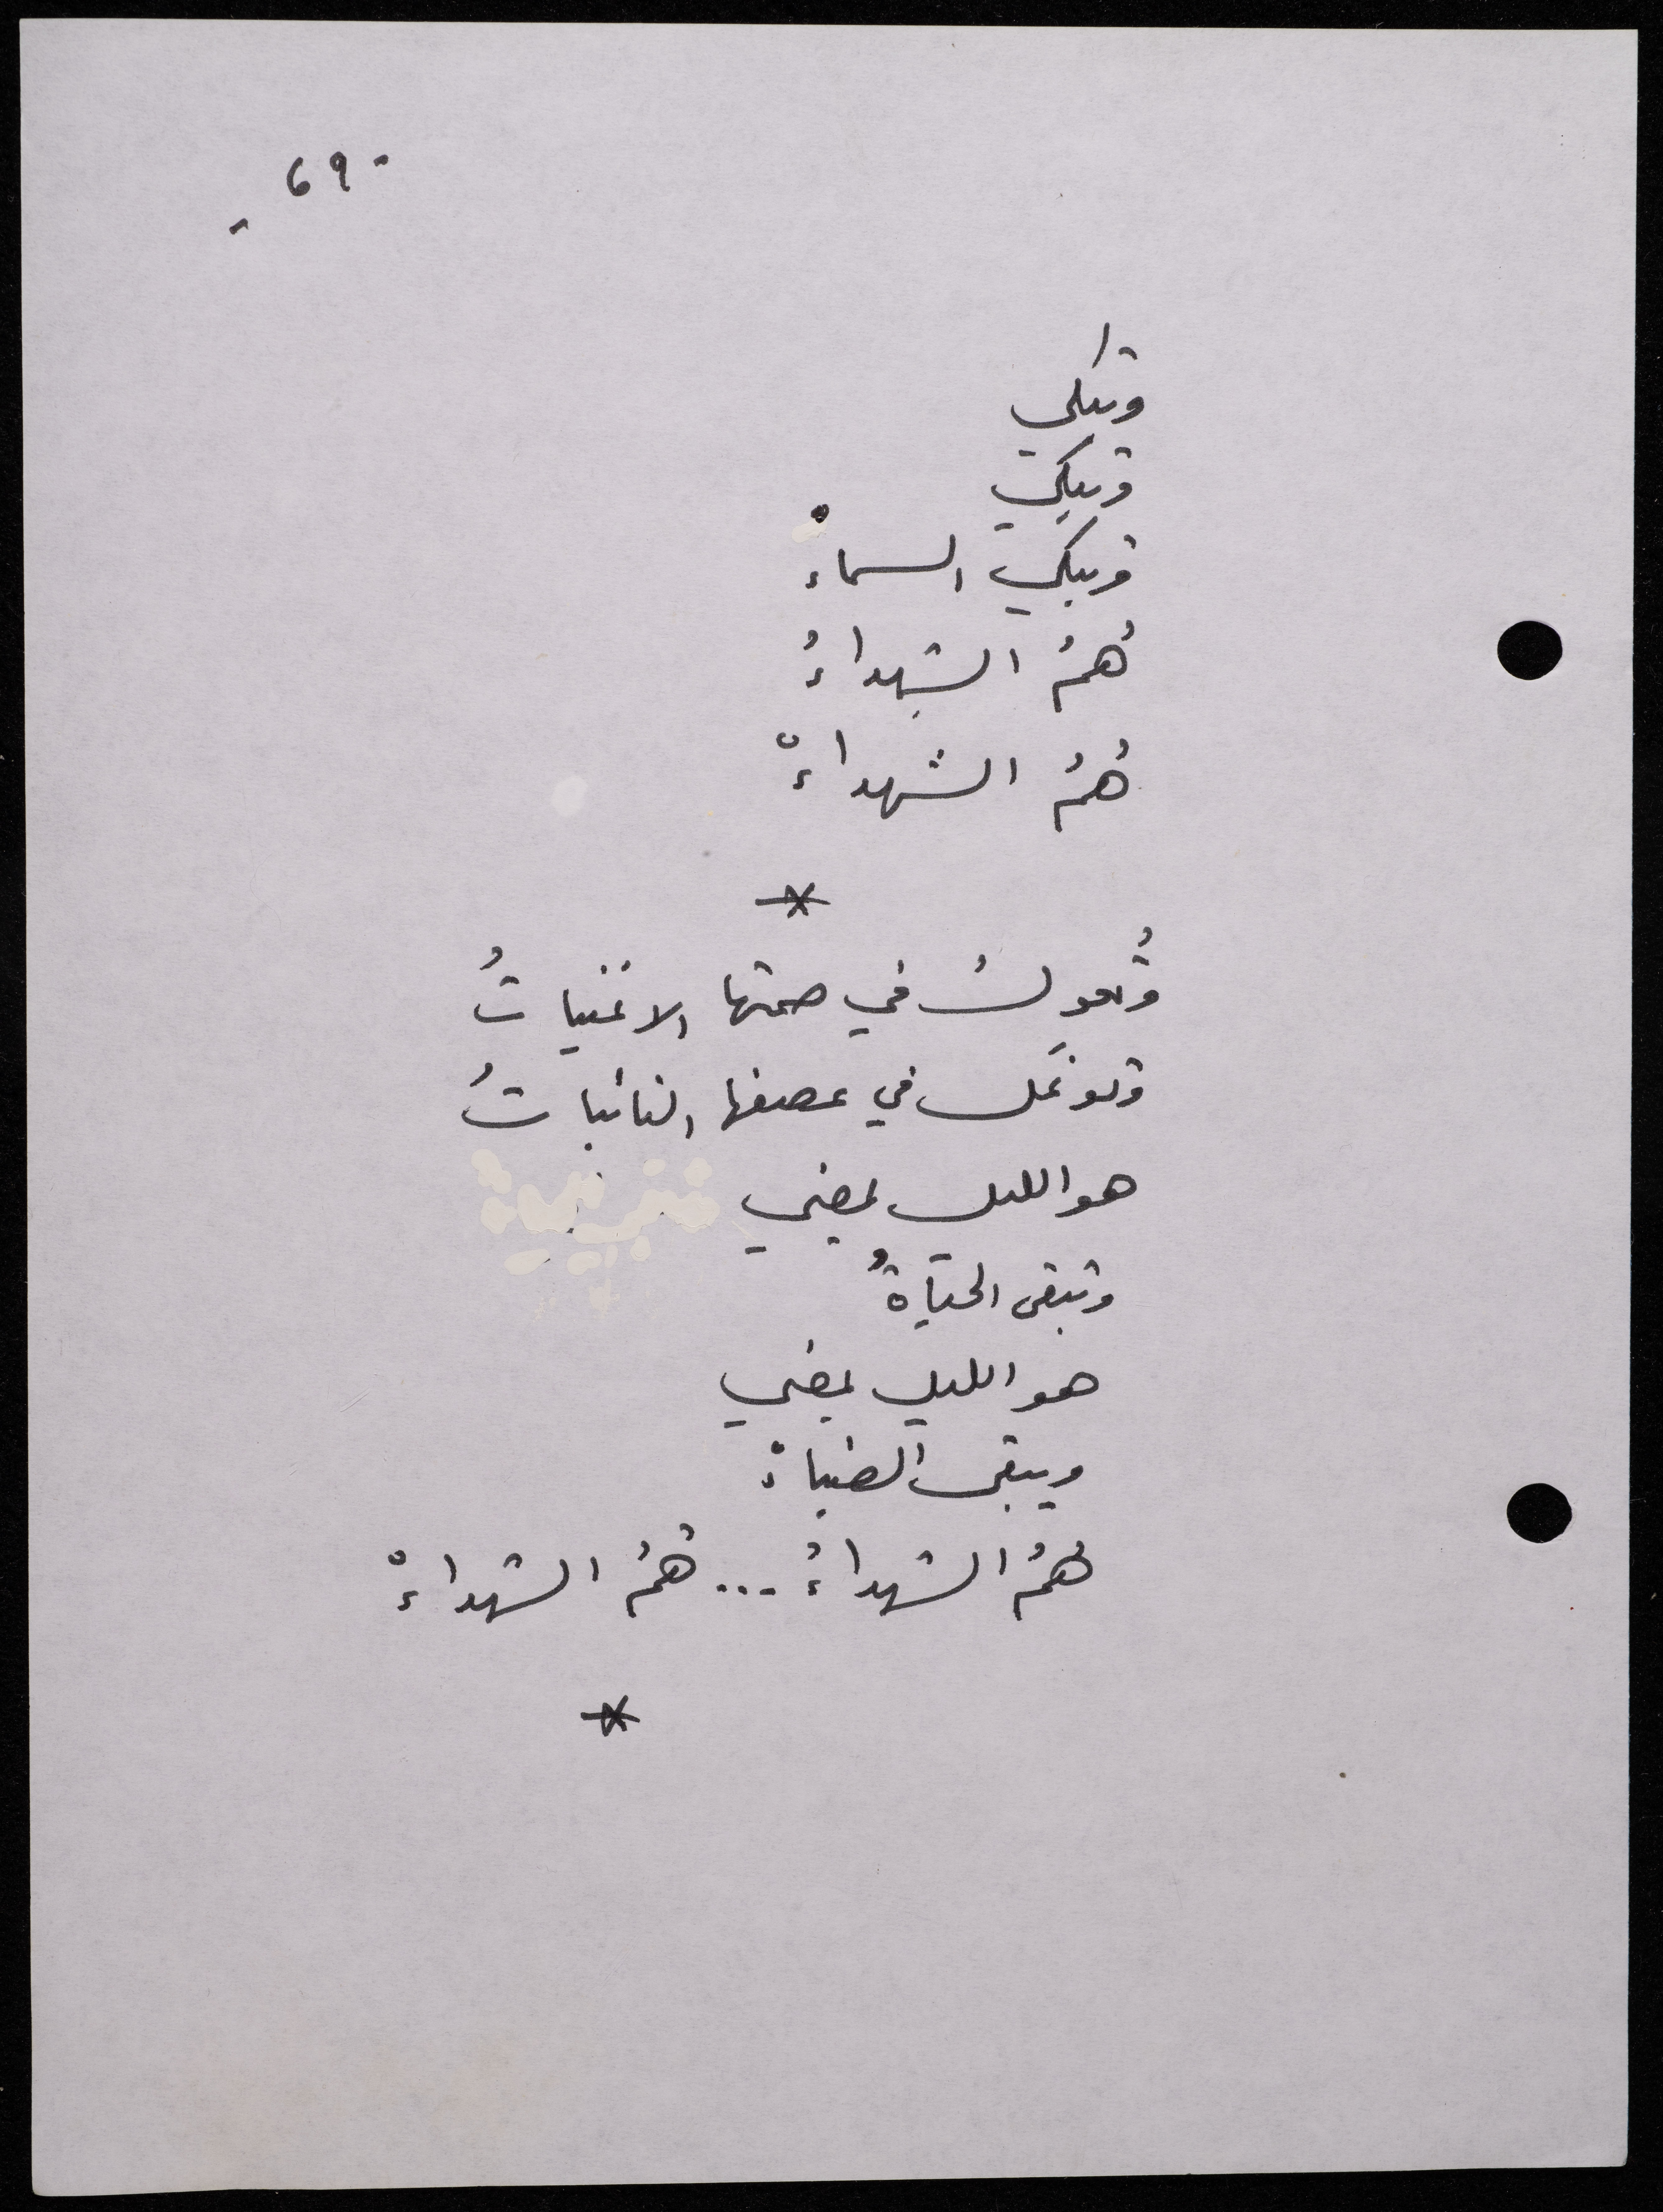 - 69 -
وتبكي
وتبكي
وتبكي السماءْ
هُمُ الشهداءُ
هُمُ الشهداءْ
*
وتُعولُ في صمتها الاغنياتُ
وتوغل في عصفها النائباتُ
هو الليل يمضي
وتبقى الحَيَاةُ
هو الليل يمضي
ويبقى الضياءْ
هُمُ الشهداءُ ... هُمُ الشهداءْ
*